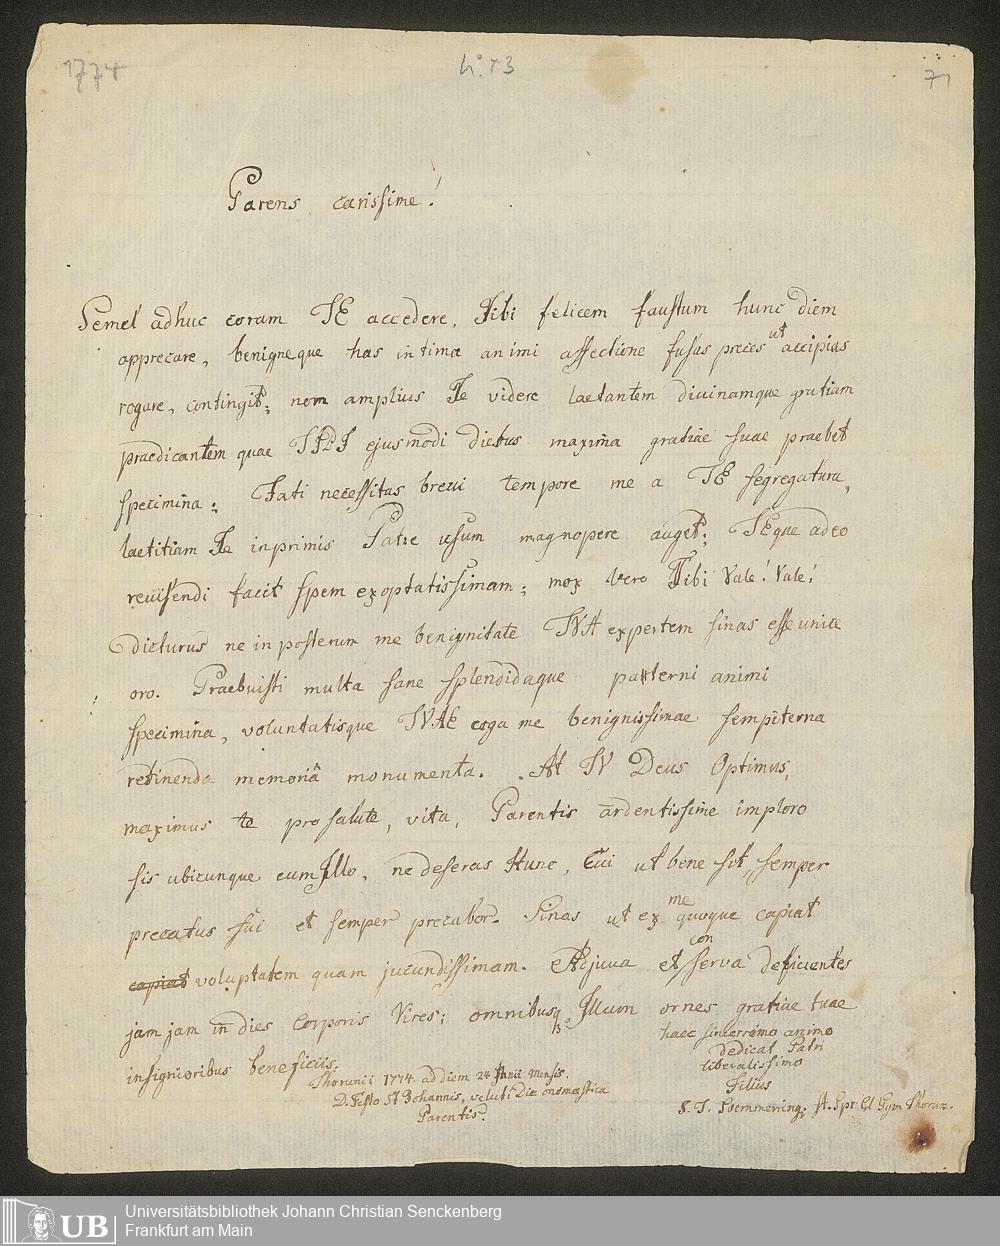 1774
No. 13
71
Parens carissime!
Semel adhuc coram TE accedere, Tibi felicem faustum hunc diem
apprecare, benigneque has intima animi affectione fusas preces ut accipias
rogare, contingit; non amplius Te videre laetantem divinamque gratiam
praedicantem quae TIBI ejusmodi diebus maxima gratiae suae praebet
specimina: Fati necessitas brevi tempore me a TE segregatura,
laetitiam Te inprimis Patre usum magnopere auget; TEque adeo
revisendi facit spem exoptatissimam; mox vero Tibi Vale! Vale!
dicturus ne in posterum me benignitate TVA expertem sinas esse unice
oro. Praebuisti multa sane splendidaque paterni animi
specimina, voluntatisque TVAE erga me benignissimae sempiterna
retinenda memoriâ monumenta. At TV Deus Optimus,
maximus te pro salute, vita, Parentis ardentissime imploro
sis ubicunque cum Illo, ne deseras Hunc, Cui ut bene sit, semper
precatus fui et semper precabor. Sinas ut ex me quoque capiat
capiat voluptatem quam jucundissimam. Adjuva et conserva deficientes
jam jam in dies Corporis Vires; omnibusq Illum ornes gratiae tuae
insignioribus beneficiis.
haec sincerrimo animo
dedicat Patri
liberalissimo
Filius
S. T. Soemmerring, A. Spr Cl Gym Thorun.
Thorunii 1774. ad diem 24 Junii mensis.
D. Festo St Johannis, veluti Die onomastica
Parentis.
UB
Universitätsbibliothek Johann Christian Senckenberg
Frankfurt am Main